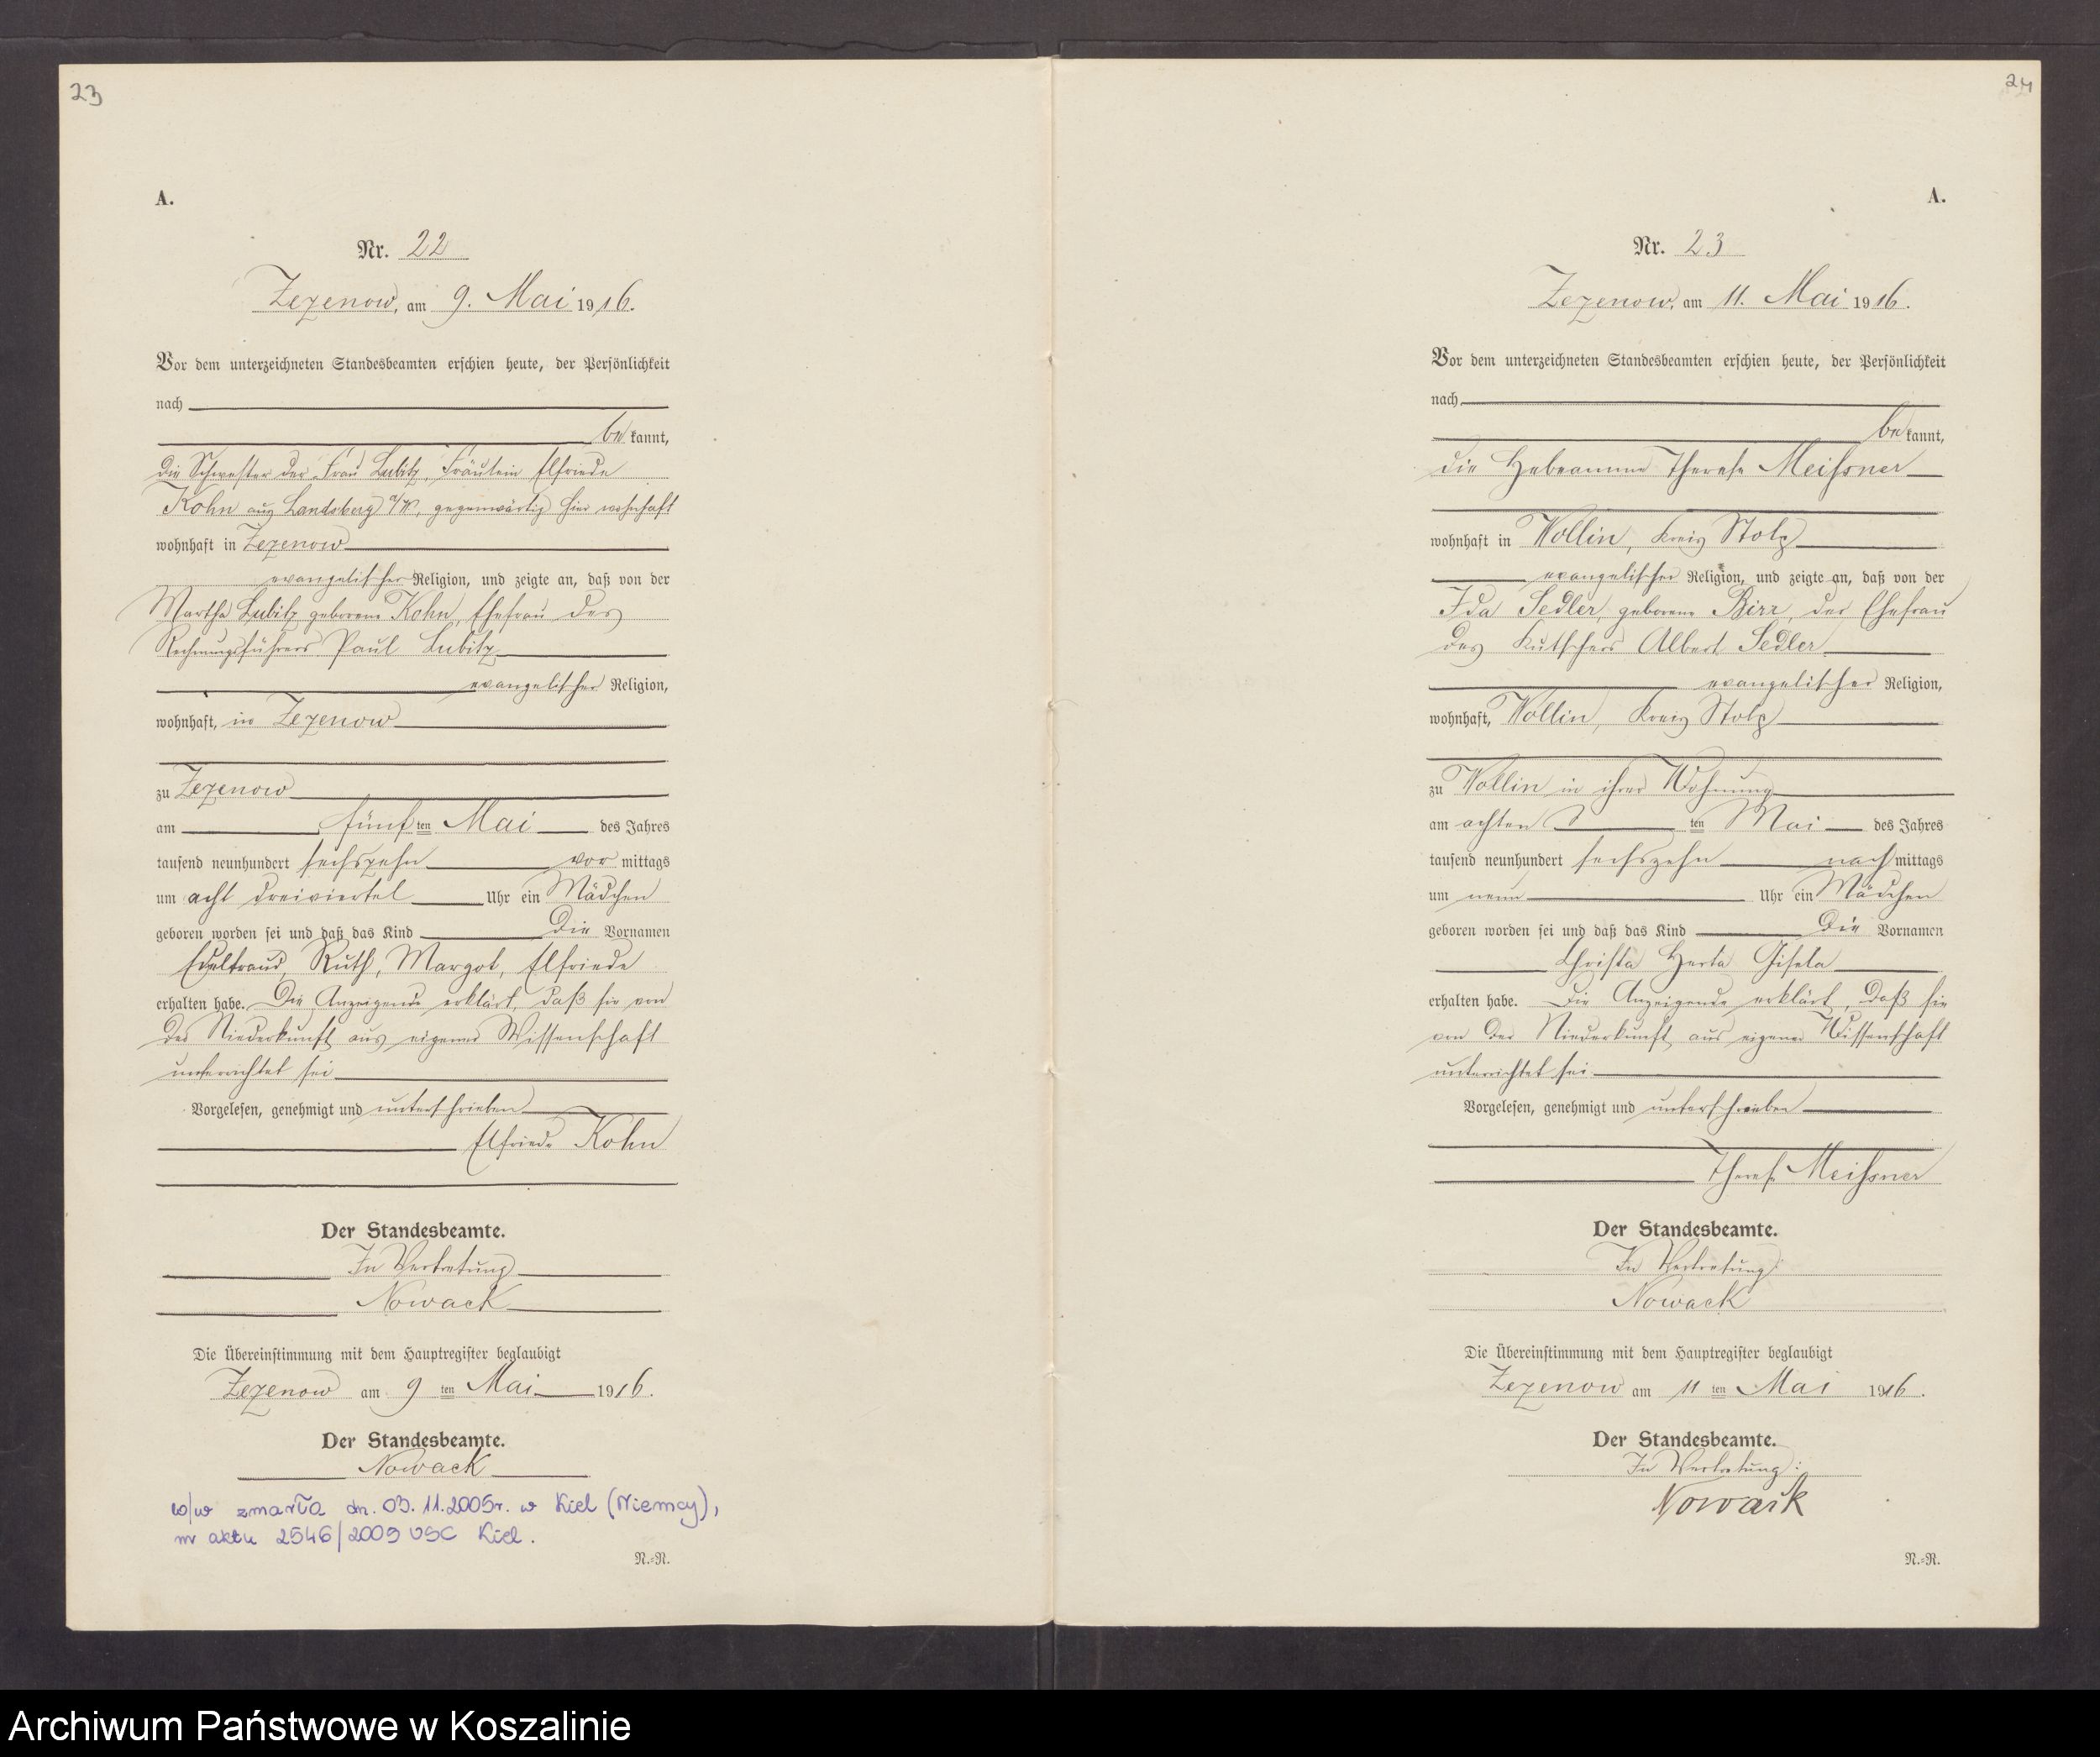 23
A.
Nr. 22
Zezenow, am 9. Mai 1916.
Vor dem unterzeichneten Standesbeamten erschien heute, der Persönlichkeit
nach
bekannt,
die Schwester der Frau Lubitz, Fräulein Elfriede
Kohn aus Landsberg a/W, gegenwärtig hier wohnhaft
wohnhaft in Zezenow
evangelischer Religion, und zeigte an, daß von der
Martha Lubitz geborene Kohn, Ehefrau des
Rechnungsführers Paul Lubitz
evangelischer Religion,
wohnhaft, in Zezenow
zu Zezenow
am fünften Mai des Jahres
tausend neunhundert sechszehn vormittags
um acht dreiviertel Uhr ein Mädchen
geboren worden sei und daß das Kind die Vornamen
Edeltraud, Ruth, Margot, Elfriede
erhalten habe. Die Anzeigende erklärt, daß sie von
der Niederkunft aus eigener Wissenschaft
unterrichtet sei
Vorgelesen, genehmigt und unterschrieben
Elfriede Kohn
Der Standesbeamte.
In Vertretung
Nowack
Die Übereinstimmung mit dem Hauptregister beglaubigt
Zezenow am 9ten Mai 1916.
Der Standesbeamte.
Nowack
w/w zmarła dn. 03.11.2005r. w Kiel (Niemcy),
nr aktu 2546/2009 USC Kiel.
N.=N.
24
A.
Nr. 23
Zezenow, am 11. Mai 1916.
Vor dem unterzeichneten Standesbeamten erschien heute, der Persönlichkeit
nach
bekannt,
die Hebeamme Therese Meißner
wohnhaft in Wollin, Kreis Stolp
evangelischer Religion, und zeigte an, daß von der
Ida Sedler, geborene Birr, der Ehefrau
des Kutschers Albert Sedler
evangelischer Religion,
wohnhaft, Wollin, Kreis Stolp
zu Wollin in ihrer Wohnung
am achten ten Mai des Jahres
tausend neunhundert sechszehn nachmittags
um neun Uhr ein Mädchen
geboren worden sei und daß das Kind die Vornamen
Christa Herta Gisela
erhalten habe. Die Anzeigende erklärt, daß sie
von der Niederkunft aus eigener Wissenschaft
unterrichtet sei
Vorgelesen, genehmigt und unterschrieben
Therese Meißner
Der Standesbeamte.
In Vertretung:
Nowack
Die Übereinstimmung mit dem Hauptregister beglaubigt
Zezenow am 11ten Mai 1916.
Der Standesbeamte.
In Vertretung:
Nowack
N.=N.
Archiwum Państwowe w Koszalinie